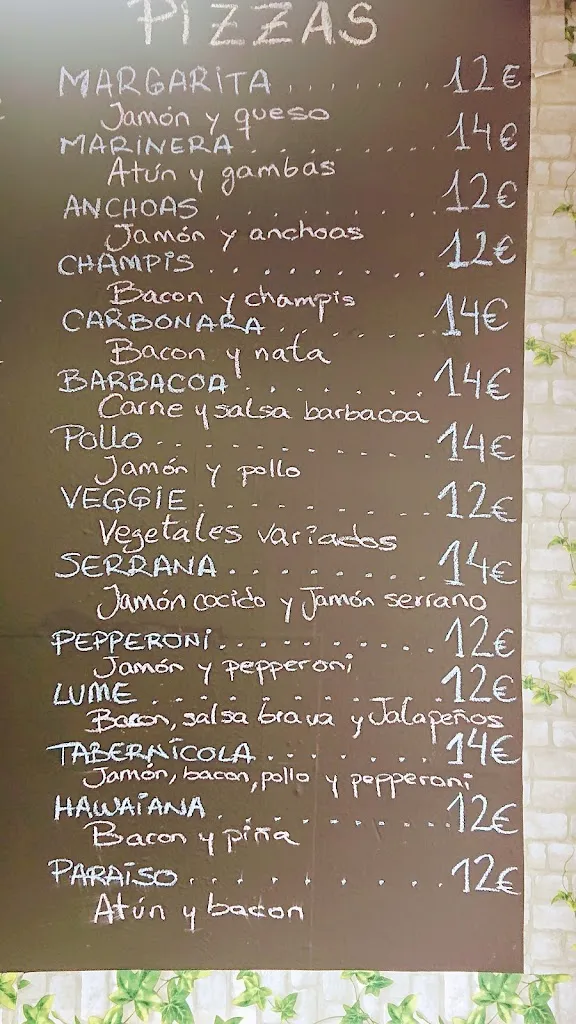 PiZZAS
MARGARiTA ........ 12€
Jamón y queso
MARiNERA ......... 14€
Atún y gambas
ANCHOAS .......... 12€
Jamón y anchoas
CHAMPiS .......... 12€
Bacon y champis
CARBONARA ....... 14€
Bacon y nata
BARBACOA ........ 14€
Carne y salsa barbacoa
POLLO ........... 14€
Jamón y pollo
VEGGiE .......... 12€
Vegetales variados
SERRANA ......... 14€
Jamón cocido y Jamón serrano
PEPPERONi .......... 12€
Jamón y pepperoni
LUME ............ 12€
Bacon, salsa brava y Jalapeños
TABERNÍCOLA ....... 14€
Jamón, bacon, pollo y pepperoni
HAWAiANA ......... 12€
Bacon y piña
PARAÍSO .......... 12€
Atún y bacon